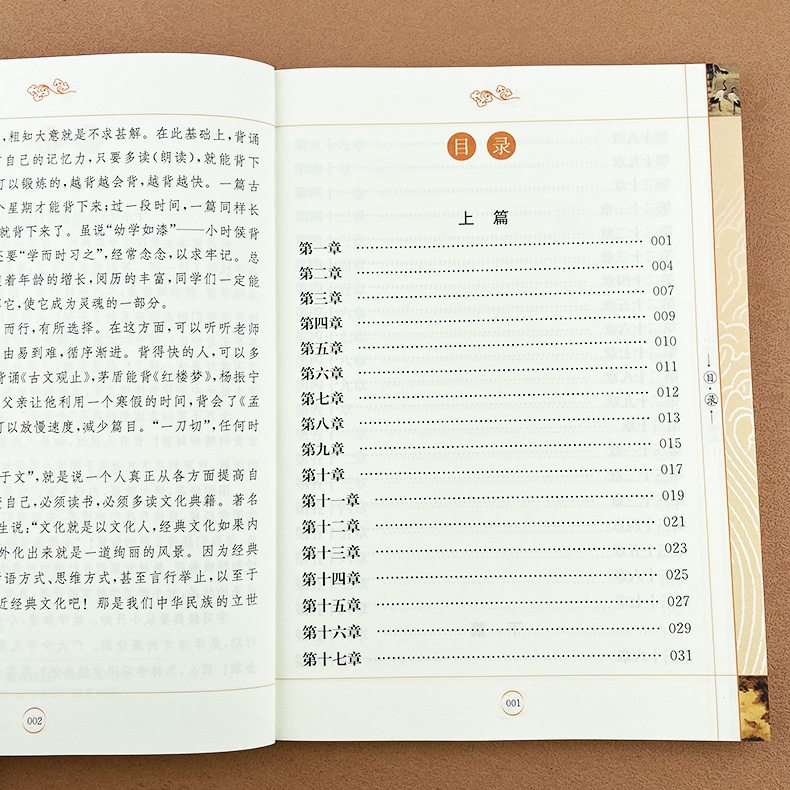 ，粗知大意就是不求甚解。在此基础上，背诵
自己的记忆力，只要多读(朗读)，就能背下
可以锻炼的，越背越会背，越背越快。一篇古
个星期才能背下来；过一段时间，一篇同样长
就背下来了。虽说“幼学如漆”——小时候背
还要“学而时习之”，经常念念，以求牢记。总
着年龄的增长，阅历的丰富，同学们一定能
它，使它成为灵魂的一部分。
而行，有所选择。在这方面，可以听听老师
由易到难，循序渐进。背得快的人，可以多
背诵《古文观止》，茅盾能背《红楼梦》，杨振宁
父亲让他利用一个寒假的时间，背会了《孟
可以放慢速度，减少篇目。“一刀切”，任何时
于文”，就是说一个人真正从各方面提高自
自己，必须读书，必须多读文化典籍。著名
生说：“文化就是以文化人，经典文化如果内
外化出来就是一道绚丽的风景。因为经典
语方式、思维方式，甚至言行举止，以至于
近经典文化吧！那是我们中华民族的立世
002
目录
上 篇
第一章 …… 001
第二章 …… 004
第三章 …… 007
第四章 …… 009
第五章 …… 010
第六章 …… 011
第七章 …… 012
第八章 …… 013
第九章 …… 015
第十章 …… 017
第十一章 …… 019
第十二章 …… 021
第十三章 …… 023
第十四章 …… 025
第十五章 …… 027
第十六章 …… 029
第十七章 …… 031
001
目·录